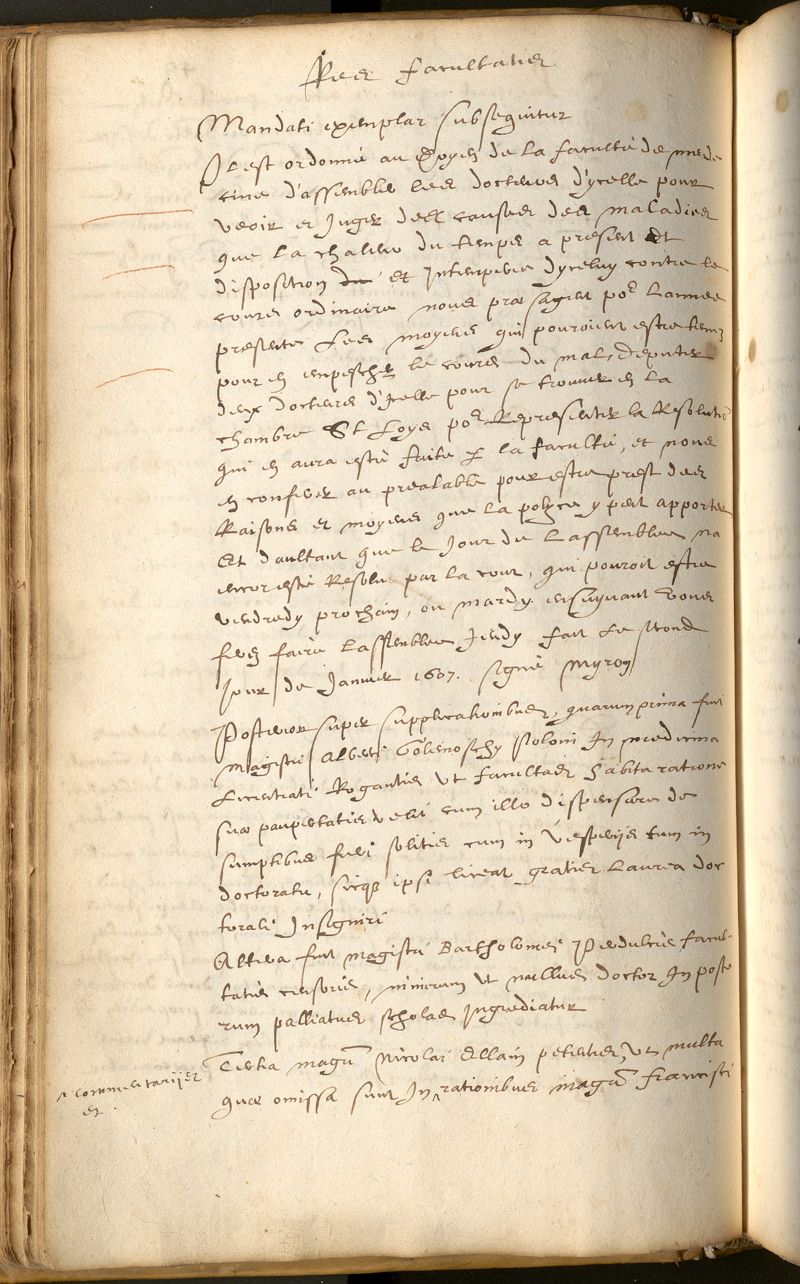 Res facultatis
Mandati exemplar subsequitur
Il est ordonné au Doyen de la faculté de mede
cine d'assembler les docteurs d'ycelle pour
veoir et Juger des causes des maladies
que la chaleur du temps a present et
disposition et Intemperie dyceluy contre le
cours ordinaire nous præsagent por Lannee
presente Les moyens qui pouroient estre tenus
pour en empescher le cours du mal, deputer
deux docteurs d'Icelle pour se trouver en la
chambre St Loys por Representer la Resolution
qui en aura esté faite par la faculté, et nous
en conferer au prealable pour estre prest des
Raisons et moyens que la polyce y peut apporter
Et daultant que le Jour de Lassemblee na
encor esté Resolu par la cour, qui pouroit estre
vendredy prochain, ou mardy ensuyvant vous
feres faire Lassemblee Jeudy fait Le second
Jour de Janvier 1607. signé Myron
Posterior super supplicationibus, quarum prima fuit
magistri Alberti Poloni In medicina
Licentiati Rogantis ut facultas habita ratione
suæ paupertatis velit cum illo dispensare de
sumptibus fieri solitis cum in vesperijs tum in
doctoratu, sicqs ipsi liceat gratis Laurea doc
torali Insigniri
Altera fuit magistri Bartholomei Perdulcis facul-
tatis censoris, nimirum ut nullus doctor In poste
rum palliatus scholas Ingrediatur
Tertia magri Nicolai Ellain petentis, ut multa
quæ omissa sunt In ^ rationibus magri Francisci
^ commentarijs
et